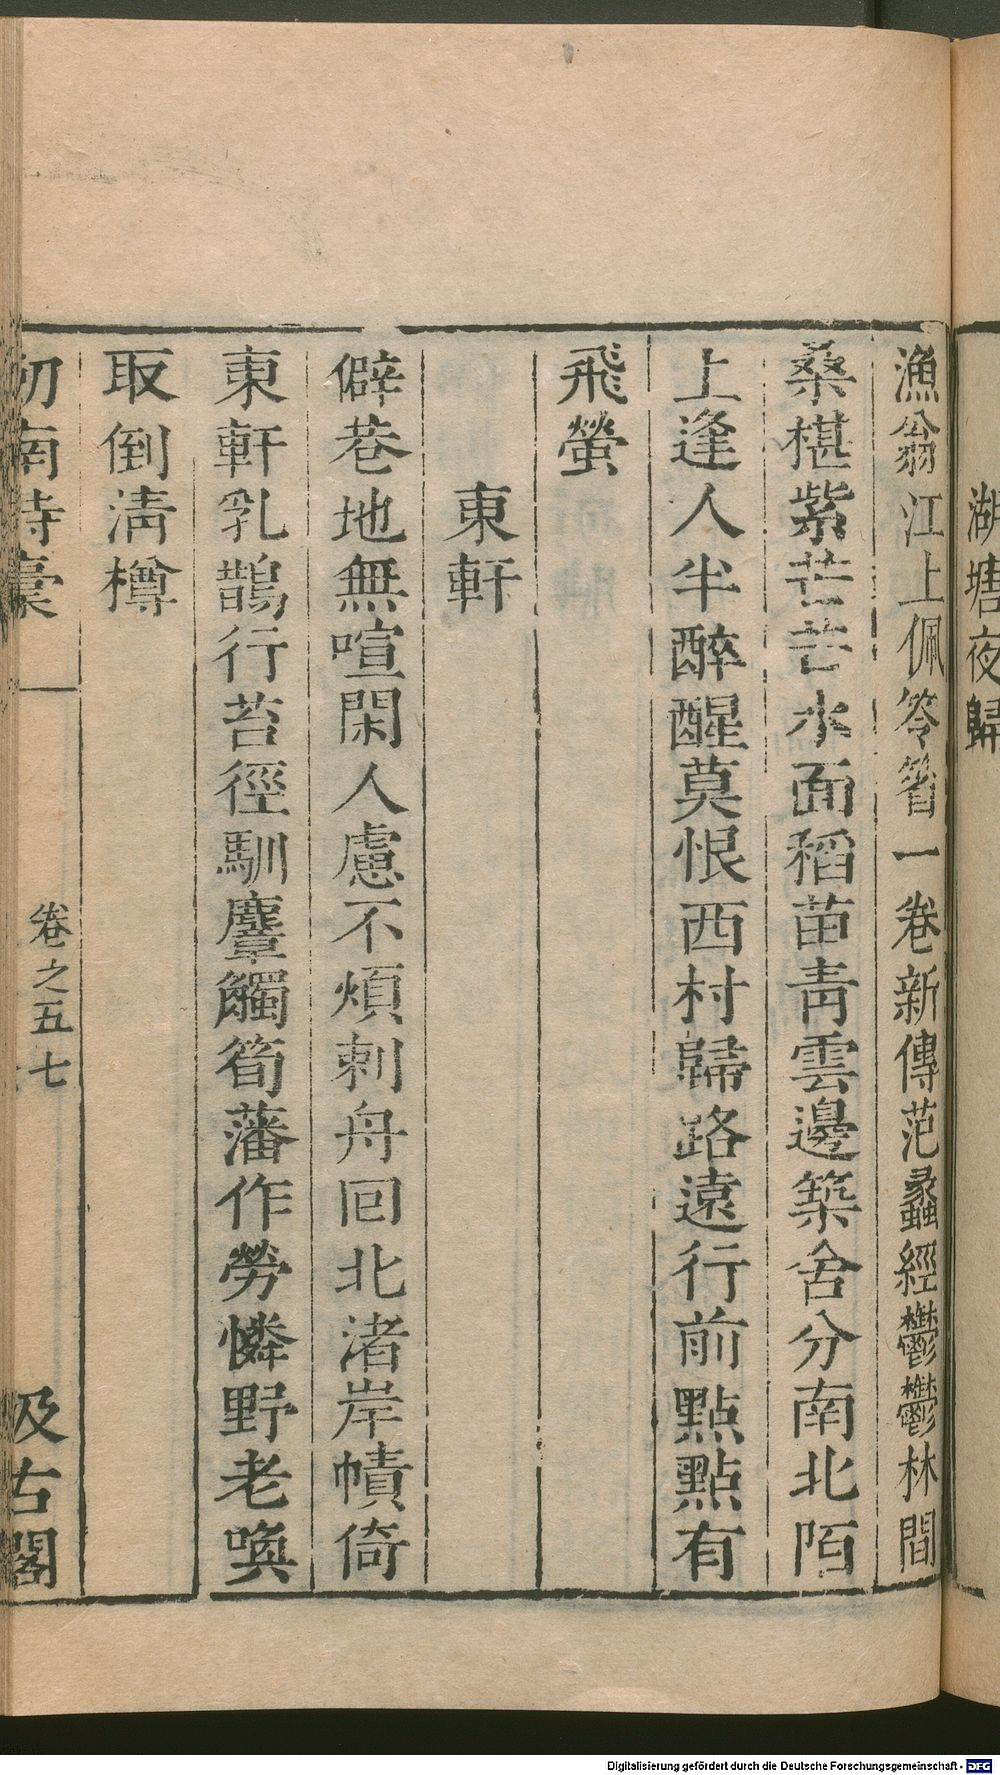 湖塘夜歸
漁翁江上佩笭箵一卷新傳范蠡經鬱鬱林間
桑椹紫芒芒水面稻苗靑雲邊築舍分南北陌
上逢人半醉醒莫恨西村歸路遠行前點點有
飛螢
東軒
僻巷地無喧閑人慮不煩剌舟回北渚岸幘倚
東軒乳鵲行苔徑馴麞觸筍藩作勞憐野老喚
取倒淸樽
劒南詩稾
卷之五
七
汲古閣
Digitalisierung gefördert durch die Deutsche Forschungsgemeinschaft - DFG